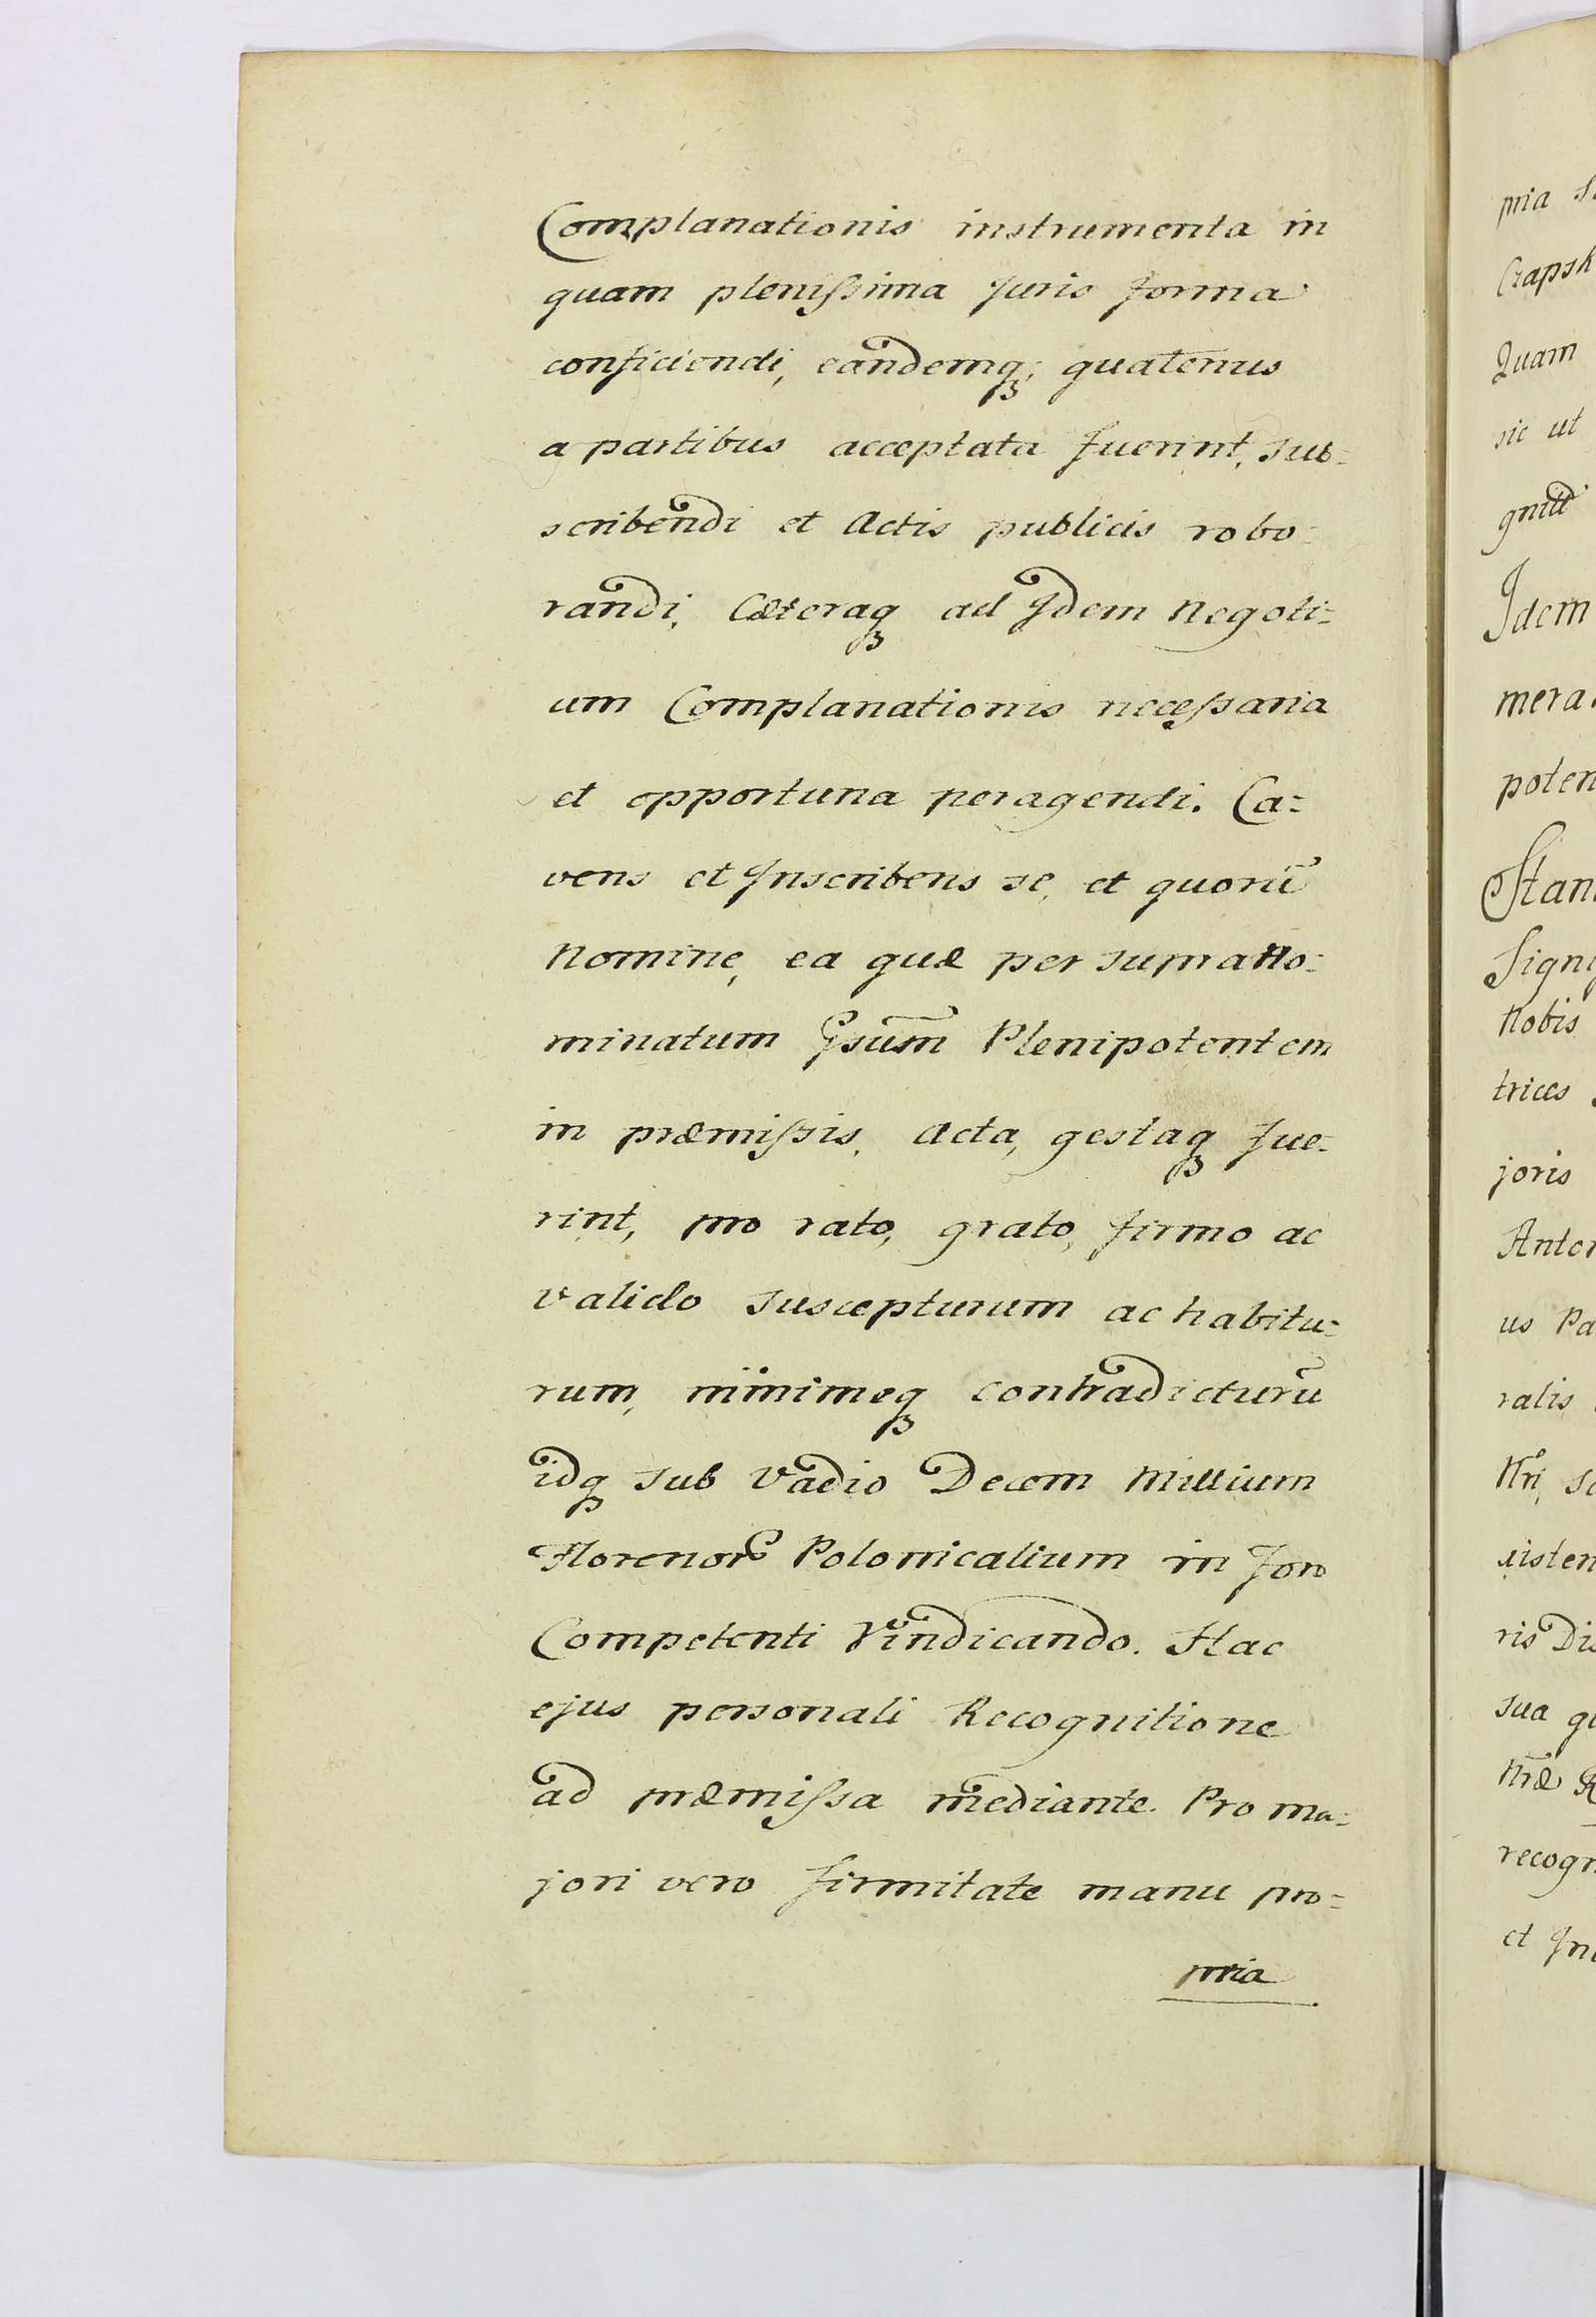 Complanationis instrumenta in
quam plenissima Juris forma
conficiendi, eandemq; quatenus
a partibus acceptata fuerint, sub=
scribendi et Actis publicis robo=
randi, Cæteraq ad Jdem Negoti=
um Complanationis necessaria
et opportuna peragendi. Ca=
vens et Jnscribens se, et quorū
Nomine, ea quæ per supra No=
minatum Jpsum Plenipotentem
in præmissis, Acta, gestaq fue=
rint, pro rato, grato, firmo ac
valido suscepturum ac habitu=
rum, minimeq contradicturū
idq sub Vadio Decem Millium
Florenor Polonicalium in foro
Competenti Vindicando. Hac
ejus personali Recognitione
ad præmissa mediante. Pro ma=
jori vero firmitate manu pro=
pria
pria
Czapsk
Quam
sic ut
Jdem
mera
poten
Stan
Sign
Nobis
trices
joris
Anton
us Pa
ralis
Nri, Sc
sisten
ris Dis
sua
Nræ R
recogn
et Jn